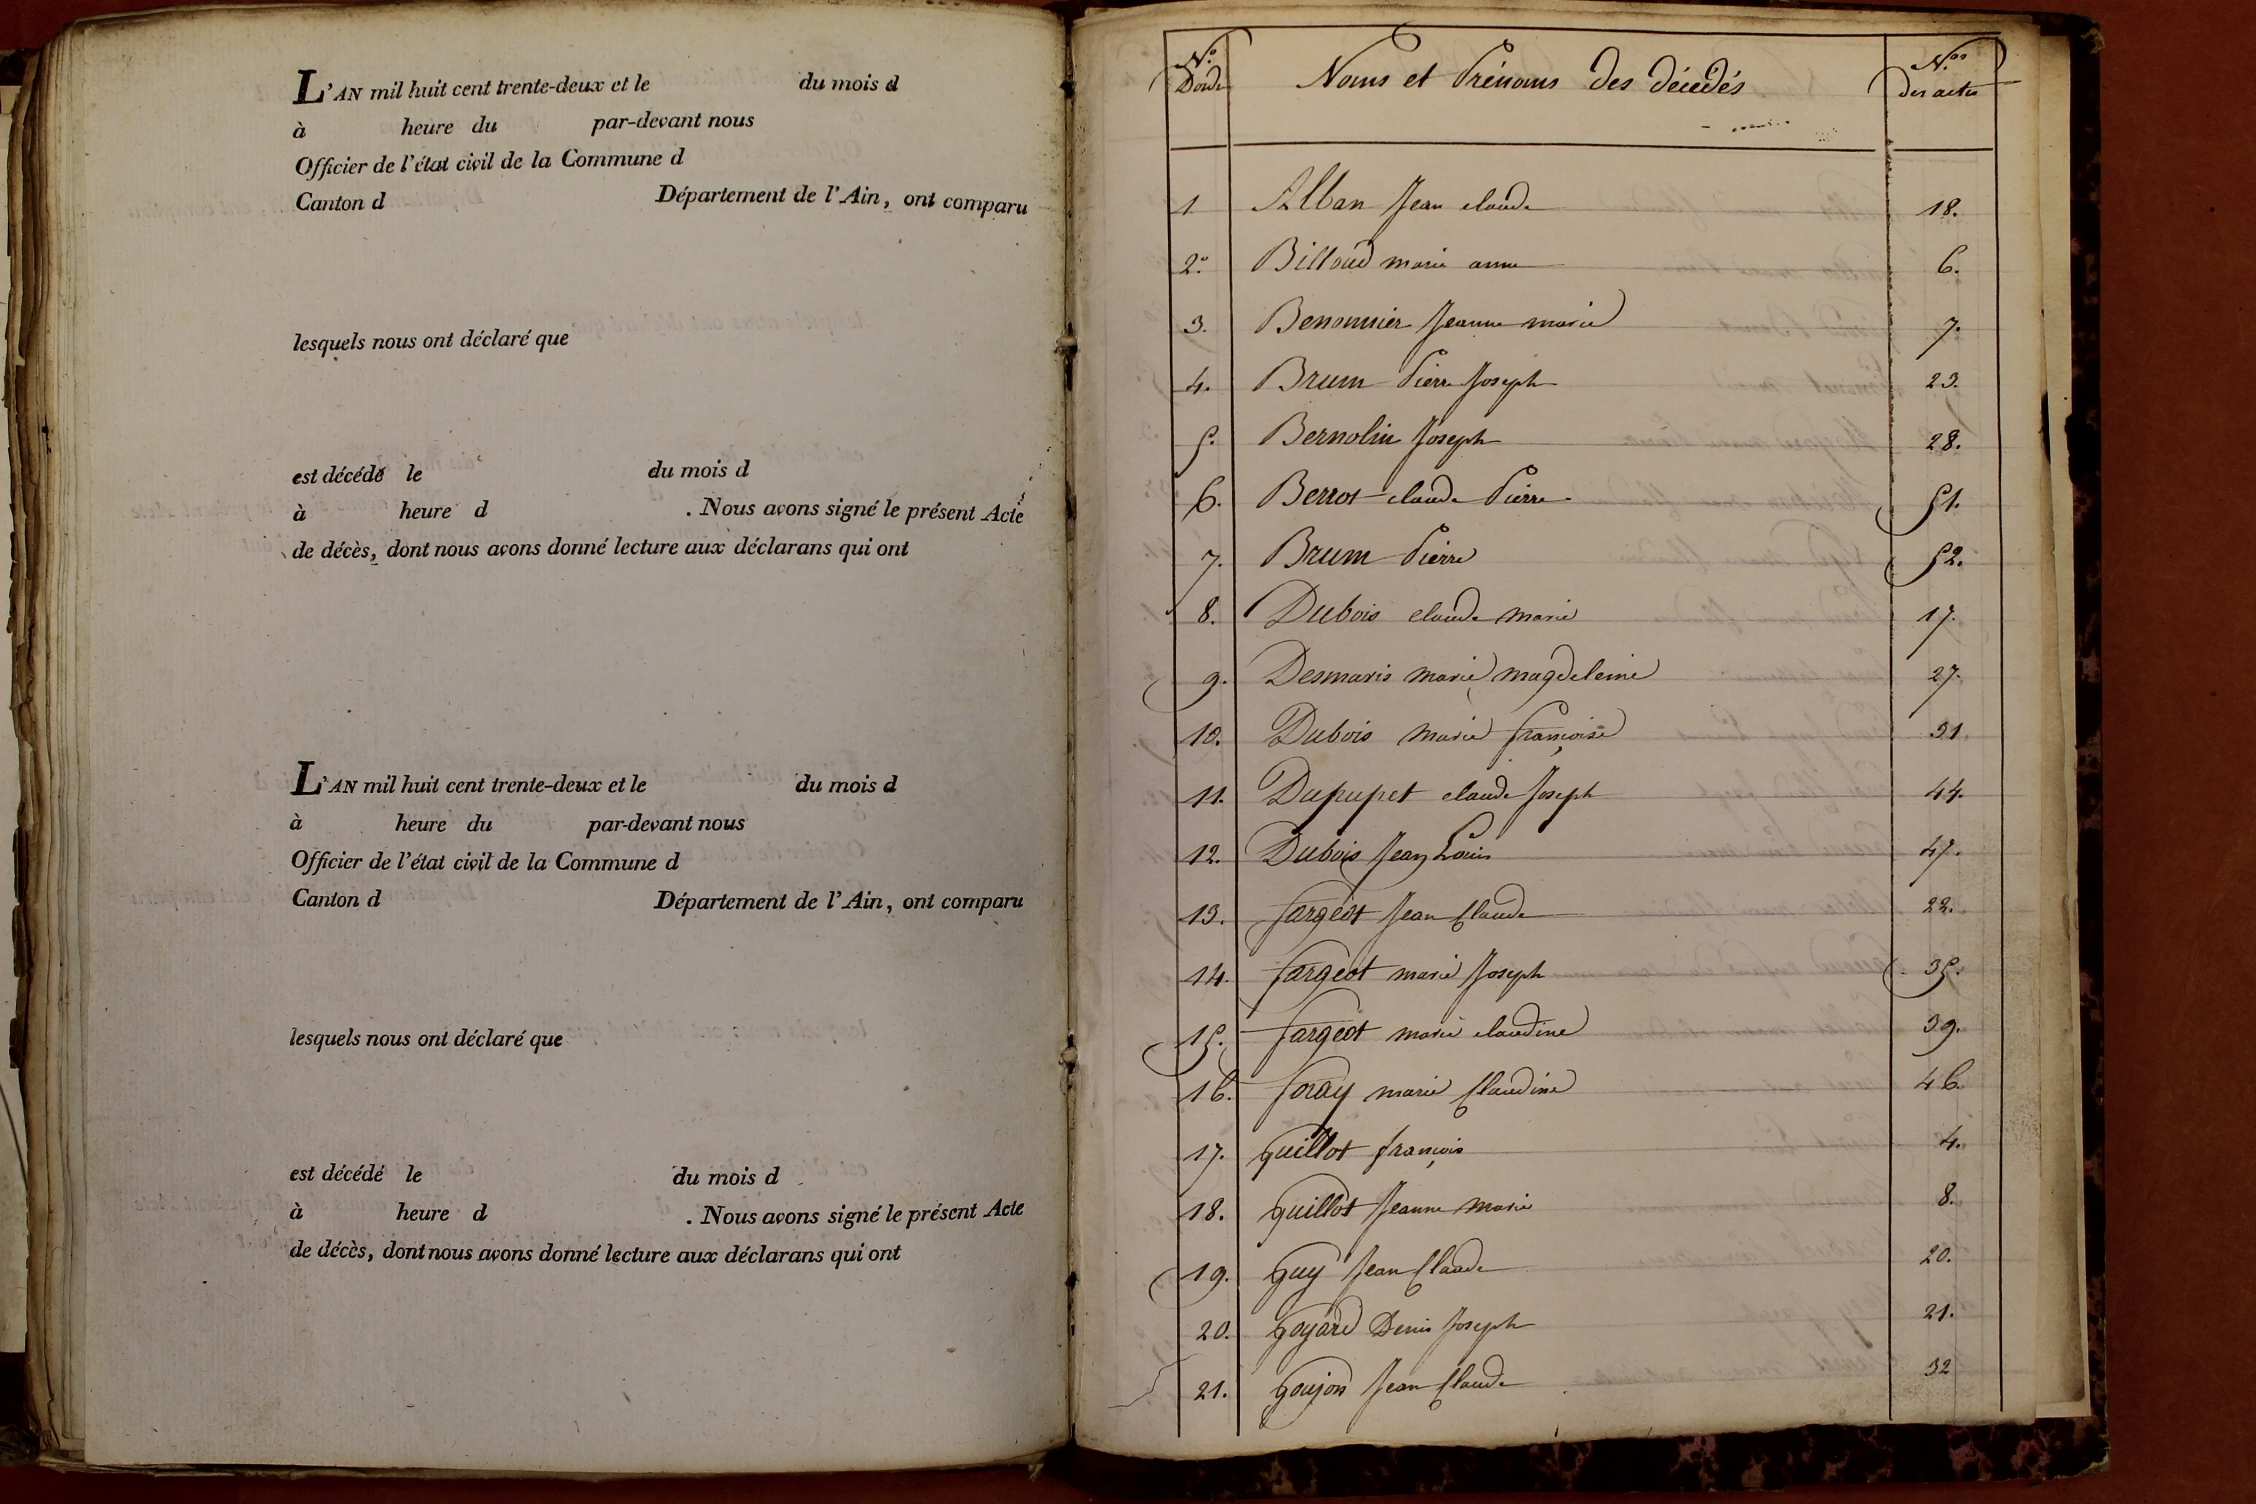 L'AN mil huit cent trente-deux et le du mois d
à heure du par-devant nous
Officier de l'état civil de la Commune d
Canton d Département de l'Ain, ont comparu
lesquels nous ont déclaré que
est décédé le du mois d
à heure d . Nous avons signé le présent Acte
de décès, dont nous avons donné lecture aux déclarans qui ont
L'AN mil huit cent trente-deux et le du mois d
à heure du par-devant nous
Officier de l'état civil de la Commune d
Canton d Département de l'Ain, ont comparu
lesquels nous ont déclaré que
est décédé le du mois d
à heure d . Nous avons signé le présent Acte
de décès, dont nous avons donné lecture aux déclarans qui ont
N.o Noms et Prénoms des décédés N.os
Dordre des actes
1 Alban Jean claude 18.
2.o Billoud marie anne 6.
3. Benonnier Jeanne marie 7.
4. Brum Pierre Joseph 23.
5. Bernolin Joseph 28.
6. Berrot claude Pierre 51.
7. Brum Pierre 52.
8. Dubois claude marie 17.
9. Desmaris marie magdeleine 27.
10. Dubois marie françoise 31.
11. Dupupet claude Joseph 44.
12. Dubois Jean Louis 47.
13. fargeot Jean Claude 22.
14. fargeot marie Joseph 35.
15. fargeot marie claudine 39.
16. foray marie Claudine 46.
17. guillot françois 4.
18. guillot Jeanne marie 8.
19. guy Jean Claude 20.
20. goyard Denis Joseph 21.
21. goujon Jean Claude 32